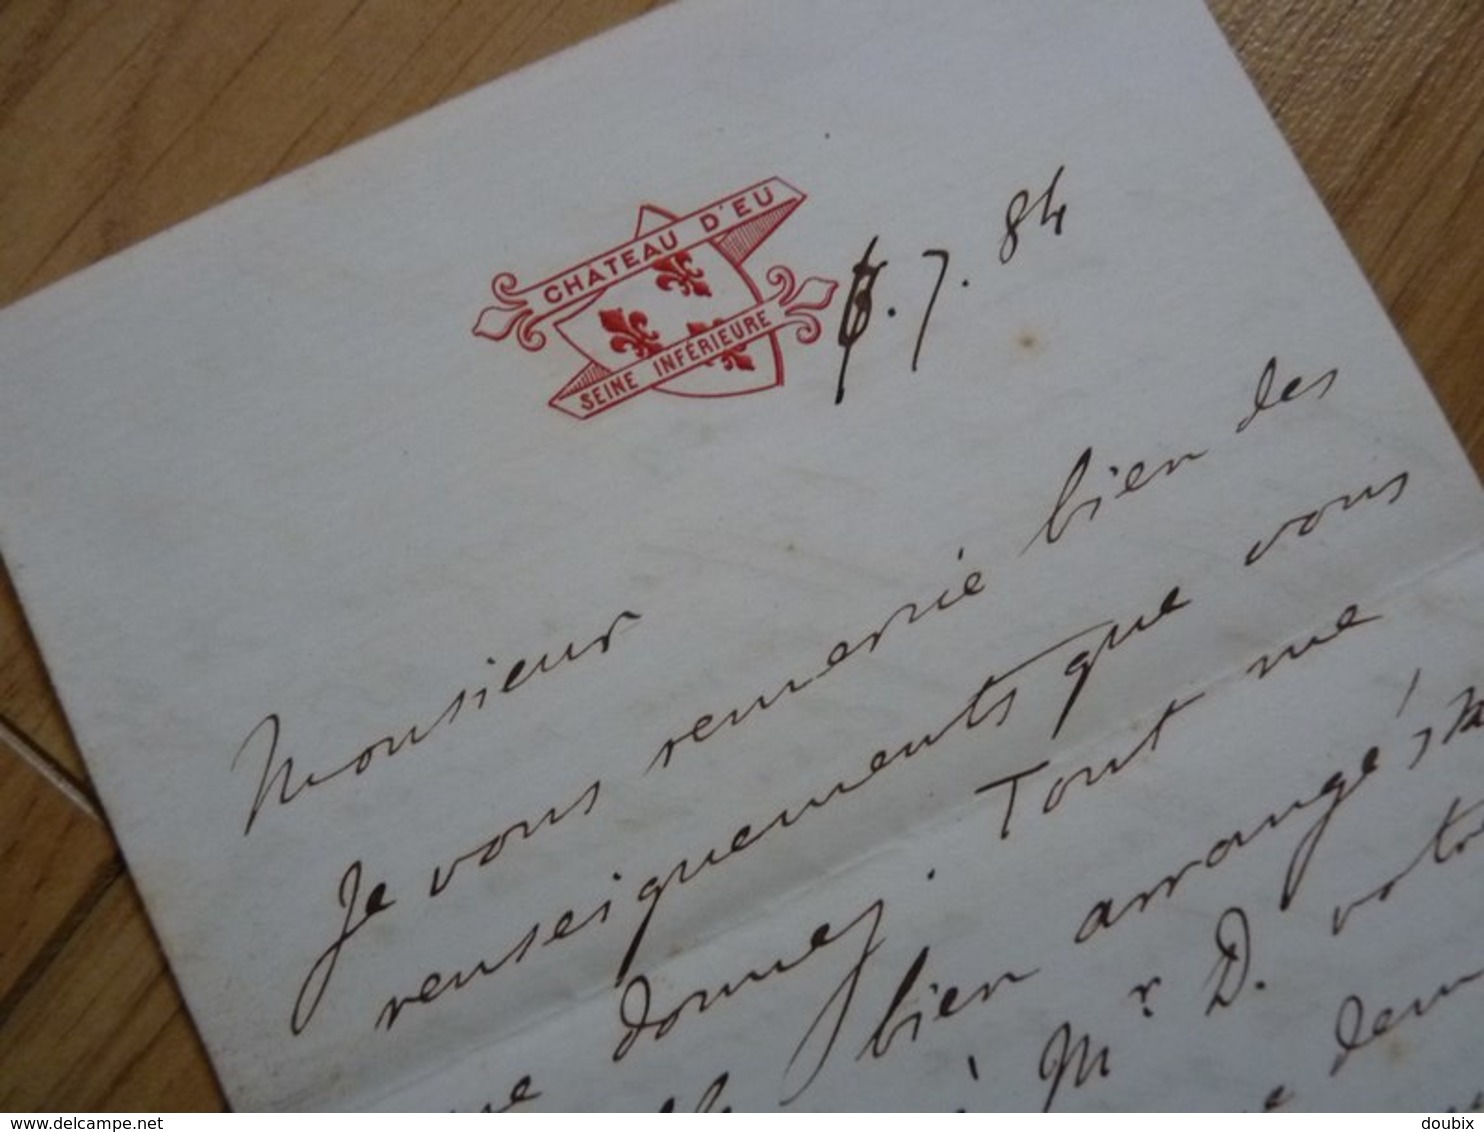 CHATEAU D'EU
SEINE INFÉRIEURE
7. 84
Monsieur
Je vous remercie bien des
renseignements que vous
me donnez. Tout me
bien arrangé
à Mr D. votre
delcampe.net
doubix